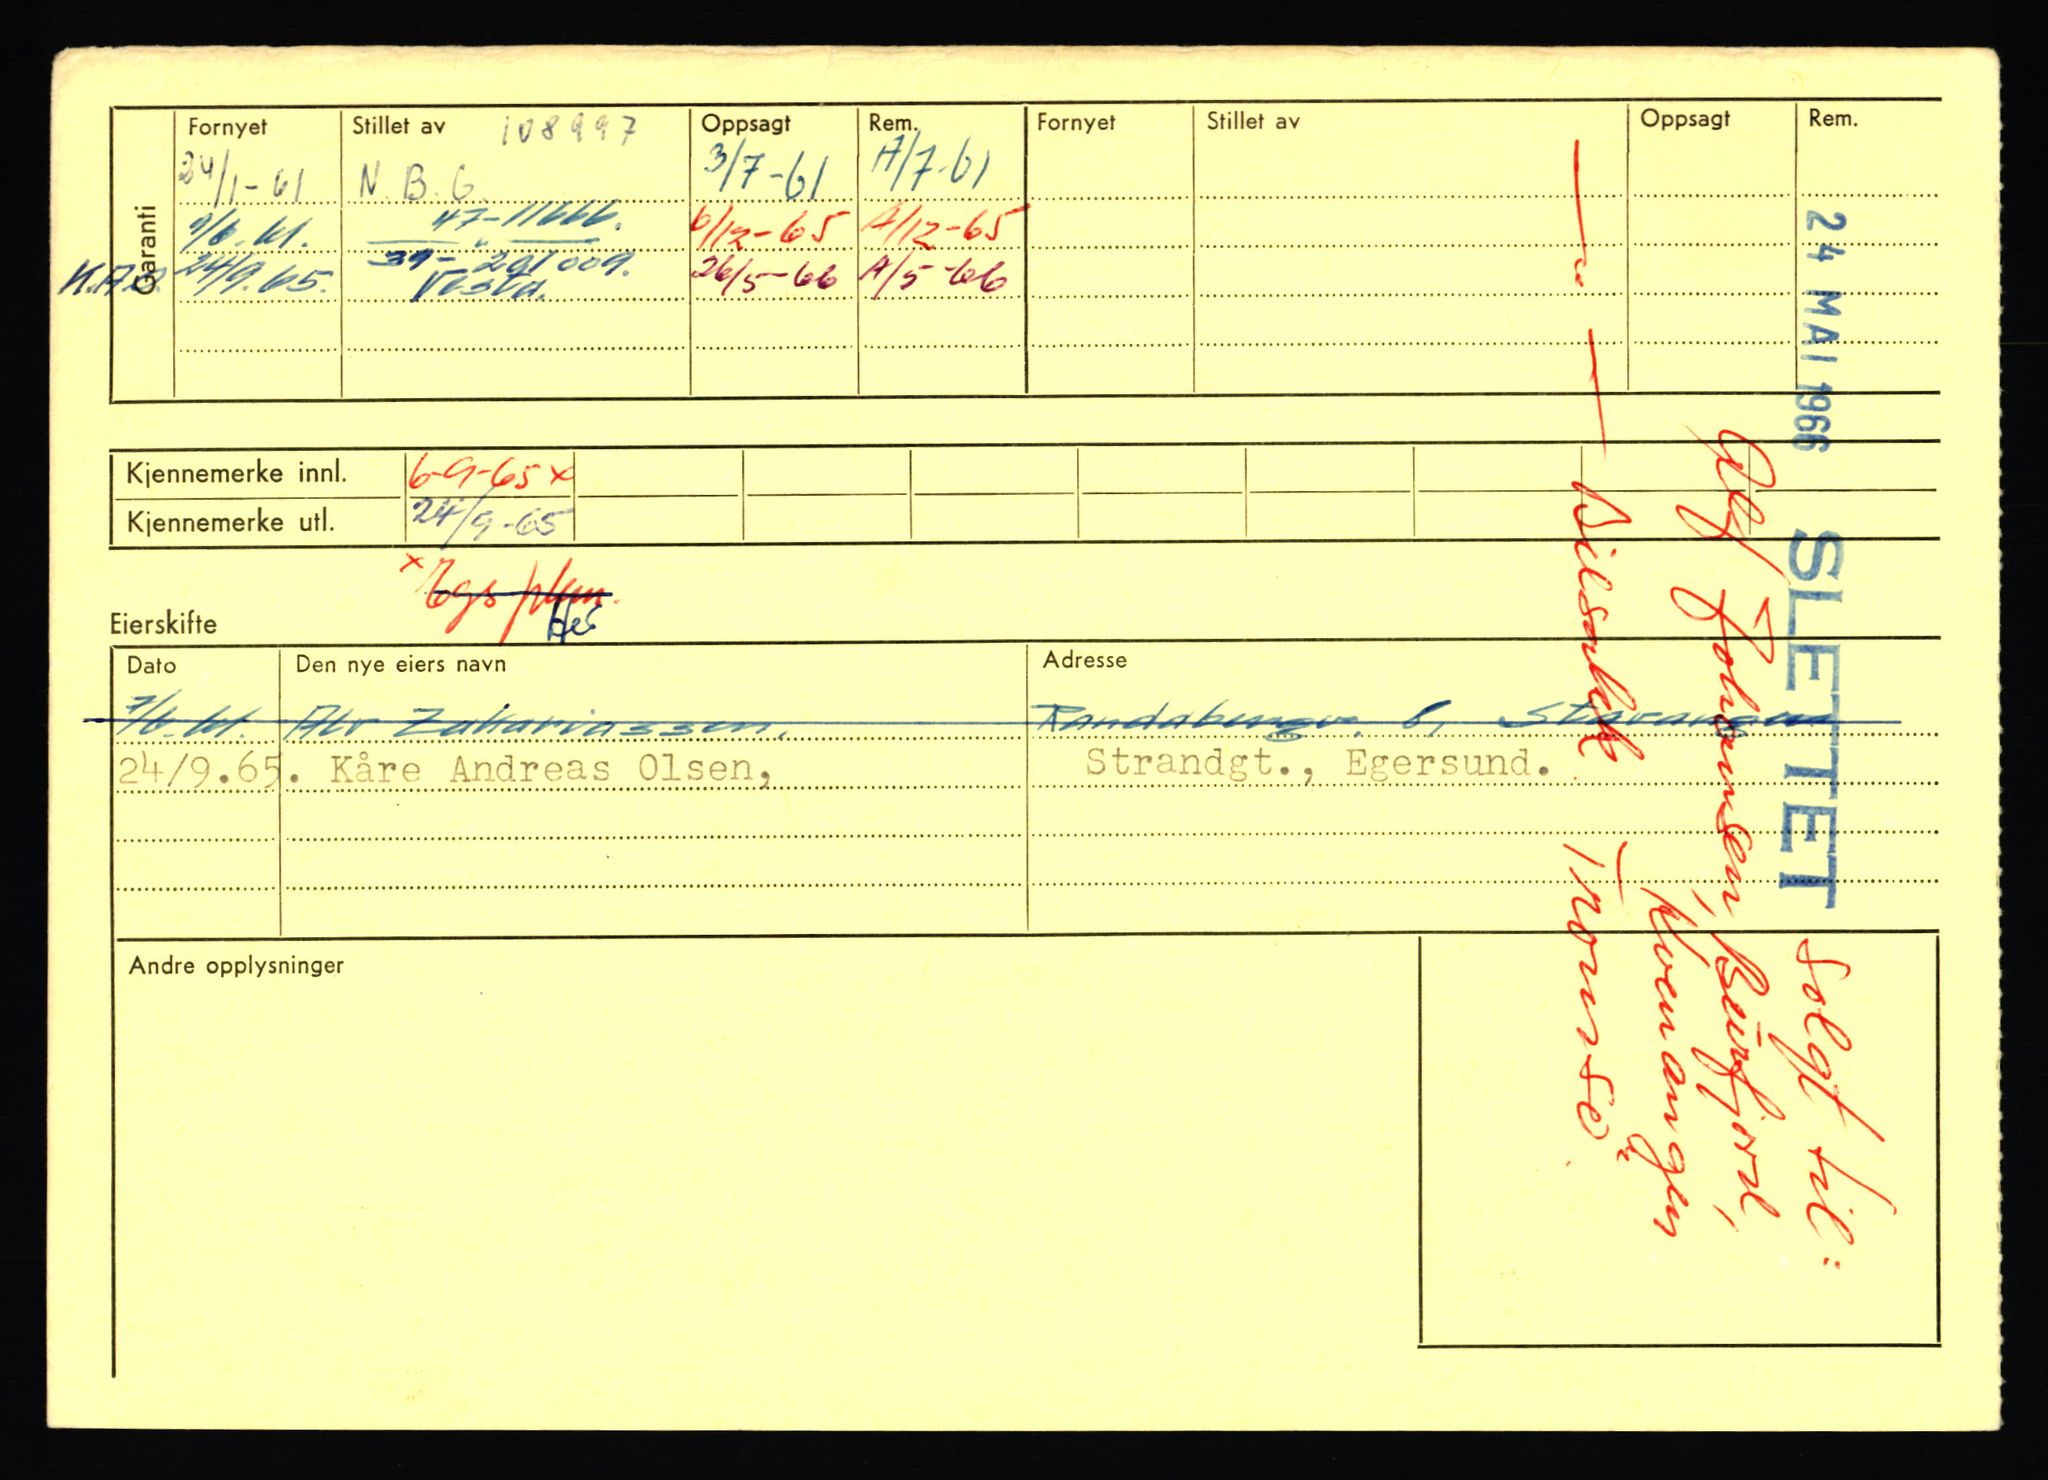 Garanti
Fornyet Stillet av 108997 Oppsagt Rem. Fornyet Stillet av Oppsagt Rem.
24/1-61 N.B.G. 3/7-61 A/7-61
7/6.61. 47-11666. 6/12-65 A/12-65
24/9.65. 39-291009. 26/5-66 A/5-66
Vesta.
Kjennemerke innl. 6-9-65 x
Kjennemerke utl. 24/9-65
x Egs
Eierskifte
Dato Den nye eiers navn Adresse
7/6.61. Alv Zakariassen, Randabergv. 6, Stavanger
24/9.65. Kåre Andreas Olsen, Strandgt., Egersund.
Andre opplysninger
24 MAI 1966 SLETTET Solgt til:
Johansen, Burfjord,
Kvenangen
Bilsakk Tromsø